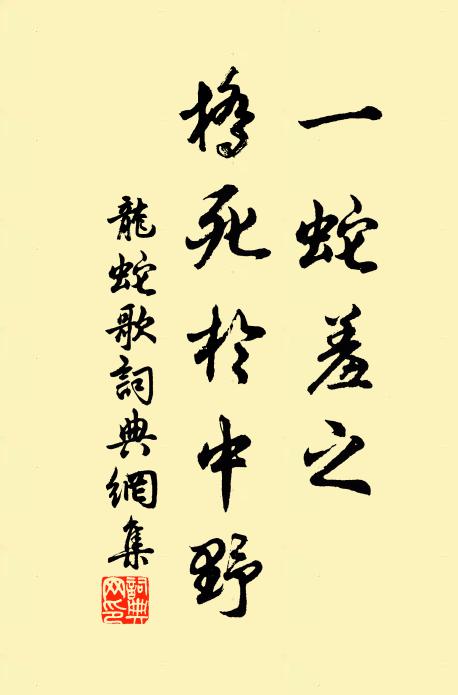 一蛇羞之
橋死於中野
龍蛇歌詞典網集
詞典网印